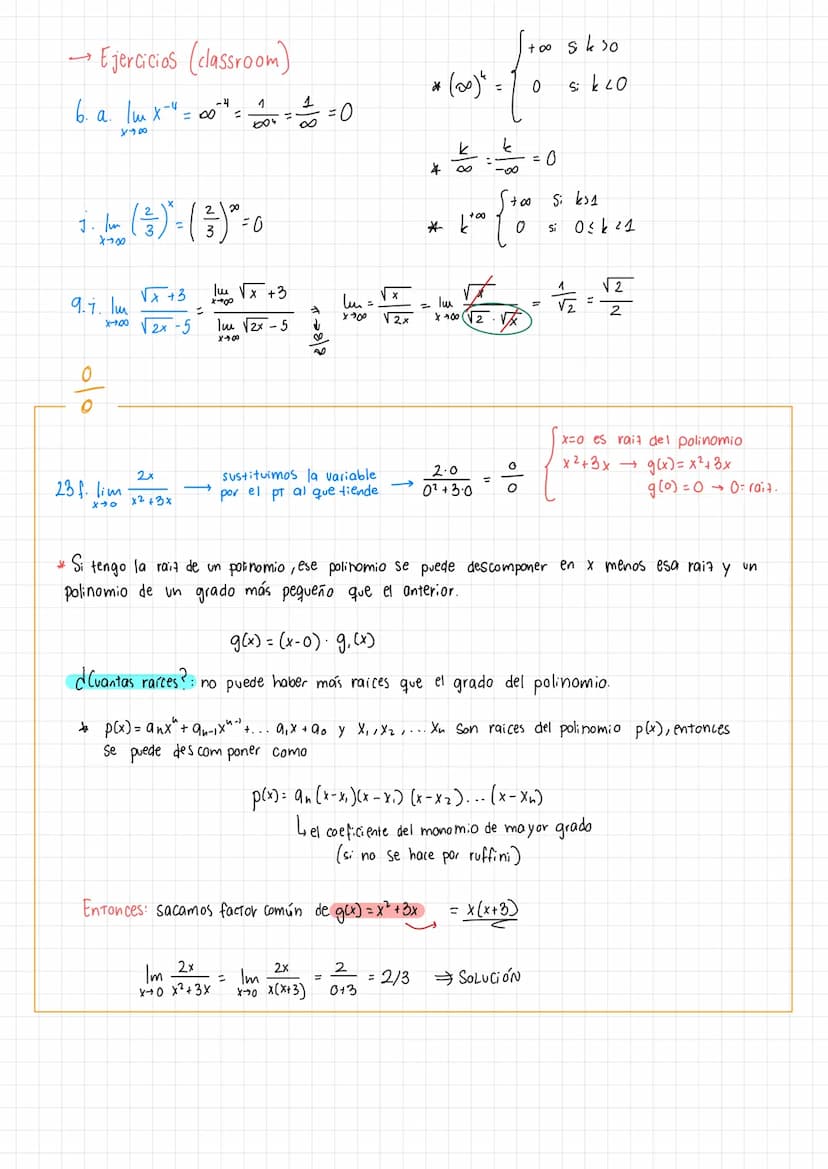 → Ejercicios (classroom)
* (∞)^k = { +∞ si k>0
0 si k<0
6. a. lim x→∞ x^-4 = ∞^-4 = 1/∞^4 = 1/∞ = 0
* k/∞ = k/-∞ = 0
j. lim x→∞ (2/3)^x = (2/3)^∞ = 0
* k^+∞ { +∞ si k>1
0 si 0≤k<1
9. i. lim x→∞ (√x +3)/(√2x -5) = (lim x→∞ √x +3)/(lim x→∞ √2x -5) → ∞/∞ lim x→∞ = √x/√2x = lim x→∞ √x/(√2 · √x) = 1/√2 = √2/2
0/0
23 f. lim x→0 2x/(x²+3x) → sustituimos la variable por el pt al que tiende → 2·0/(0²+3·0) = 0/0
{ x=0 es raiz del polinomio
x²+3x → g(x)=x²+3x
g(0)=0 → 0=raiz.
* Si tengo la raiz de un polinomio, ese polinomio se puede descomponer en x menos esa raiz y un
polinomio de un grado más pequeño que el anterior.
g(x) = (x-0) · g₁(x)
¿Cuantas raíces?: no puede haber más raices que el grado del polinomio.
* p(x) = aₙxⁿ + aₙ₋₁xⁿ⁻¹ + ... a₁x + a₀ y x₁, x₂, ... xₙ son raices del polinomio p(x), entonces
se puede descomponer como
p(x) = aₙ (x-x₁)(x-x₁) (x-x₂)... (x-xₙ)
↳ el coeficiente del monomio de mayor grado
(si no se hace por ruffini)
Entonces: sacamos factor común de g(x) = x²+3x = x(x+3)
lim x→0 2x/(x²+3x) = lim x→0 2x/(x(x+3)) = 2/(0+3) = 2/3 ⇒ SOLUCIÓN